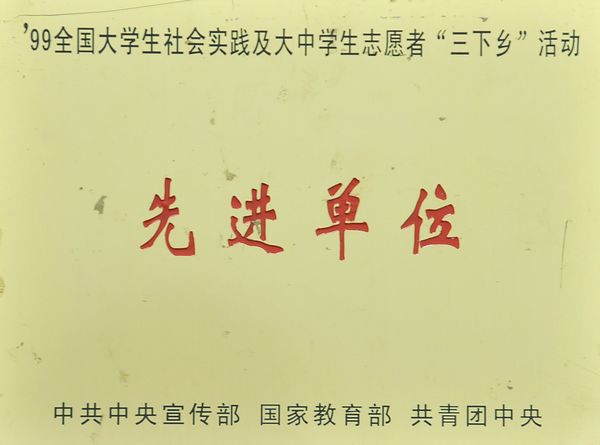 '99全国大学生社会实践及大中学生志愿者“三下乡”活动
先进单位
中共中央宣传部 国家教育部 共青团中央